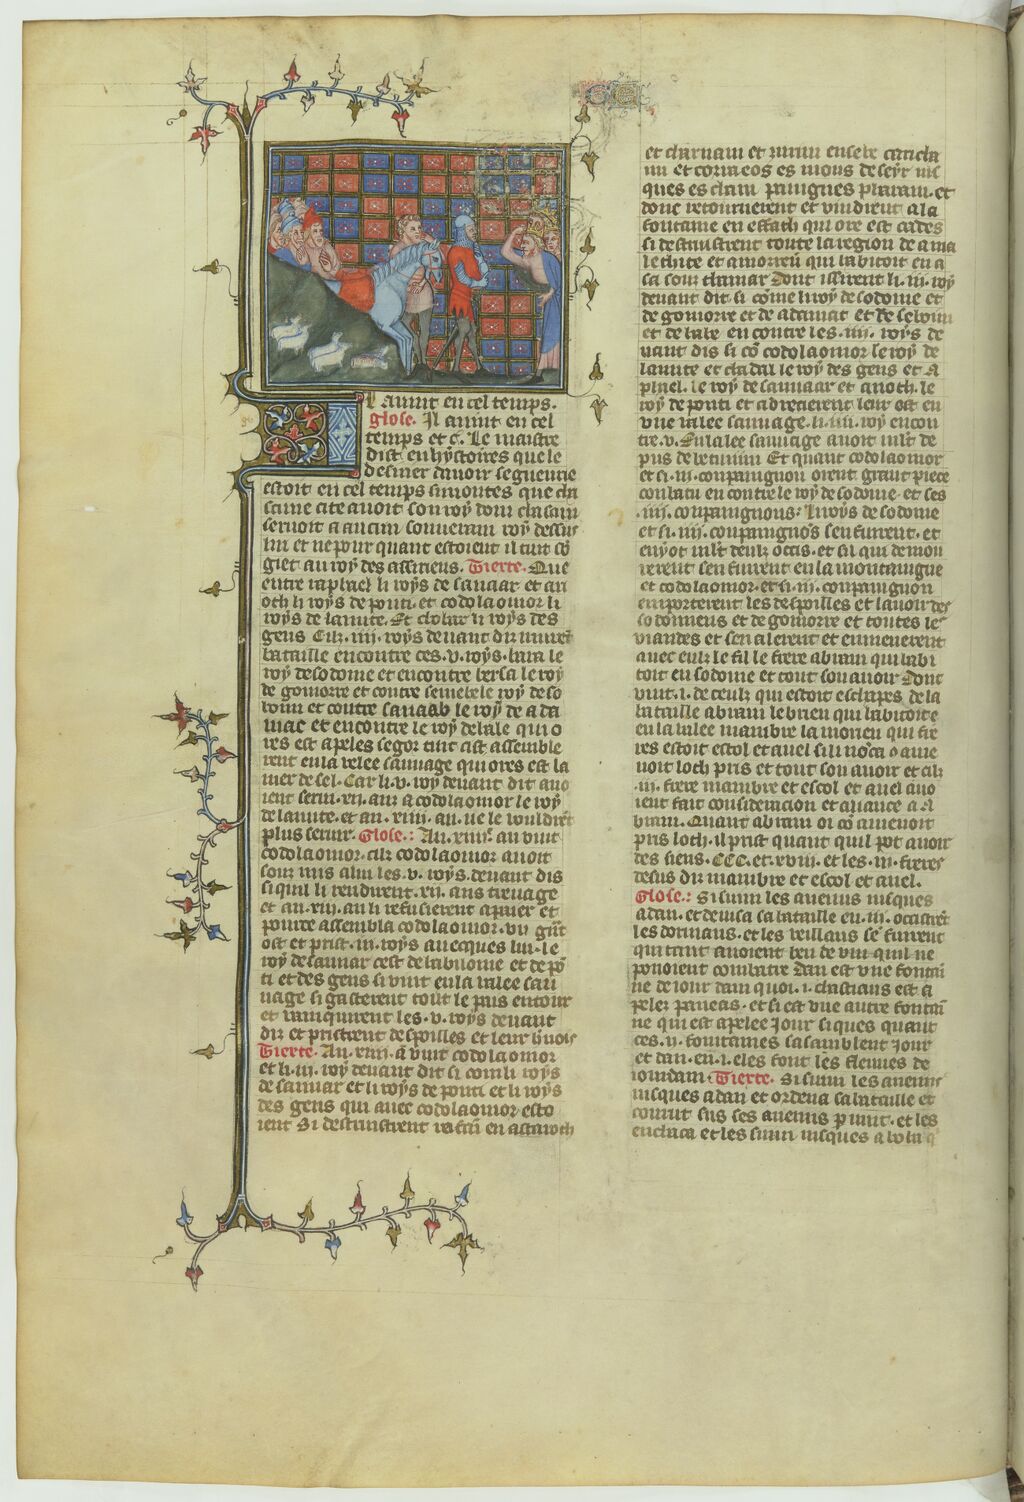 Il auint en cel temps.
Glose. Il auint en cel
temps et c. Le maistre
dist en hystoires que le
desiner dauoir segneurie
estoit en cel temps si montes que cha
scune cite auoit son roy dont chascun
seruoit a aucun souuerain roy dessur
lui et ne pour quant estoient il tuit so
giet au roy des assiriens. Tierte. Que
entre raphael li roys de sanaar et an
och li roys de ponti. et codolaomor li
roys de lamite. Et chobar li roys des
gens Cilz .iiii. roys deuant dit murent
bataille encontre ces .v. roys. bara le
roy de sodome et encontre bersa le roy
de gomorre et contre semebele roy de so
boim et contre sanaab le roy de a da
mac et encontre le roy de lale qui o
res est apeles segor tuit cist assemble
rent en la valee sauuage qui ores est la
mer de sel. Car li .v. roy deuant dit auo
ient serui .xii. ans a codolaomor le roy
de lamite. et au .xiiii. an. ne le vouldrent
plus seruir. Glose.: Au .xiiii. an vint
codolaomor. cilz codolaomor auoit
sour mis a lui les .v. roys. deuant dis
si quil li rendirent .xii. ans treuage
et au .xiii. an li refuserent a paier et
pource assembla codolaomor. vn grant
ost et prist .iii. roys auecques lui. le
roy de sannar cest de labilonie et de po
ti et des gens si vint en la valee sau
uage si gasterent tout le pais entour
et vainquirent les .v. roys deuant
dit et pristrent despoilles et leur auoir
Tierte. Au .xiiii. an vint codolaomor
et li .iii. roy deuant dit si com li roys
de sannar et li roys de ponti et li roys
des gens qui auec codolaomor esto
ient Si destruistrent en astaroth
et charnaim et ensele
et correos es mons de seyr ius
ques es cham paingnes pharam. et
donc retournerent et vindrent a la
fontaine en effath qui ore est cades
si destruistrent toute la region de ama
lechite et amorreu qui habitoit en a
sa son thamar Dont issirent li .iii. roy
deuant dit si come li roy de sodome et
de gomorre et de adamat et de seboim
et de lale encontre les .iiii. roys de
uant dis si com codolaomor le roy de
lamite et chadal le roy des gens et a
phael. le roy de sanaar et anoth. le
roy de ponti et adrecierent leur ost en
vne valee sauuage. li .iiii. roy encon
tre .v. En la lee sauuage auoit mlt de
puis de betumm Et quant codolaomor
et si .iii. conpaingnon orent grant piece
conbatu en contre le roy de sodome et ses
.iiii. conpaingnons: li roys de sodome
et si .iiii. conpaingnons sen fuirent. et
en y ot mlt deulz occis. et sil qui demou
rerent sen fuirent en la montaingne
et codolaomor. et si .iii. conpaingnon
emporterent les despoilles et lauoir des
sodomiens et de gomorre et toutes les
viandes et sen alerent et enmenerent
auec eulz le fil le frere abram qui habi
toit en sodome et tout son auoir Dont
vint .i. de ceulz qui estoit eschapes de la
bataille abram le brieu qui habitoit
en la valee mambre la moneu qui fre
res estoit estol et auel si li nonca
loth pris et tout son auoir et cilz
.iii. frere mambre et escol et auel auo
ient fait consideracion et aliance a a
bram. Quant abram oi com auenoit
pris loth. il prist quant quil pot auoir
des siens .CCC. et .xviii. et les .iii. freres
desus dit mambre et escol et auel.
Glose.: Si suiui les anemis iusques
a dan. et deuisa sa bataille en .iii. occistrent
les dormans. et les veillans se fuirent
qui tant auoient beu de vin quil ne
pouoient combatre Dan est vne fontai
ne de iour dam quoi .i. chastiaus est a
peler paneas. et si est vne autre fontai
ne qui est apelee iour si ques quant
ces .ii. fontaines sasamblent iour
et dan. en .i. eles font les fleuues de
iourdam. Tierte. Si suiui les anemis
iusques a dan et ordena sa bataille et
courut sus ses anemis par nuit. et les
enchaca et les suiui iusques a boba q